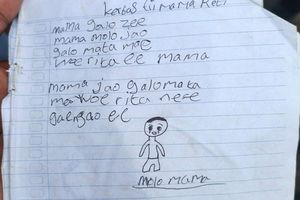 Kertas tii mama Reti
mama galo zee
mama molo Jao
galo mata mae
woe rita ee mama
mama jao galo mata
mae woe rita ne'e
gae ngao ee
molo mama